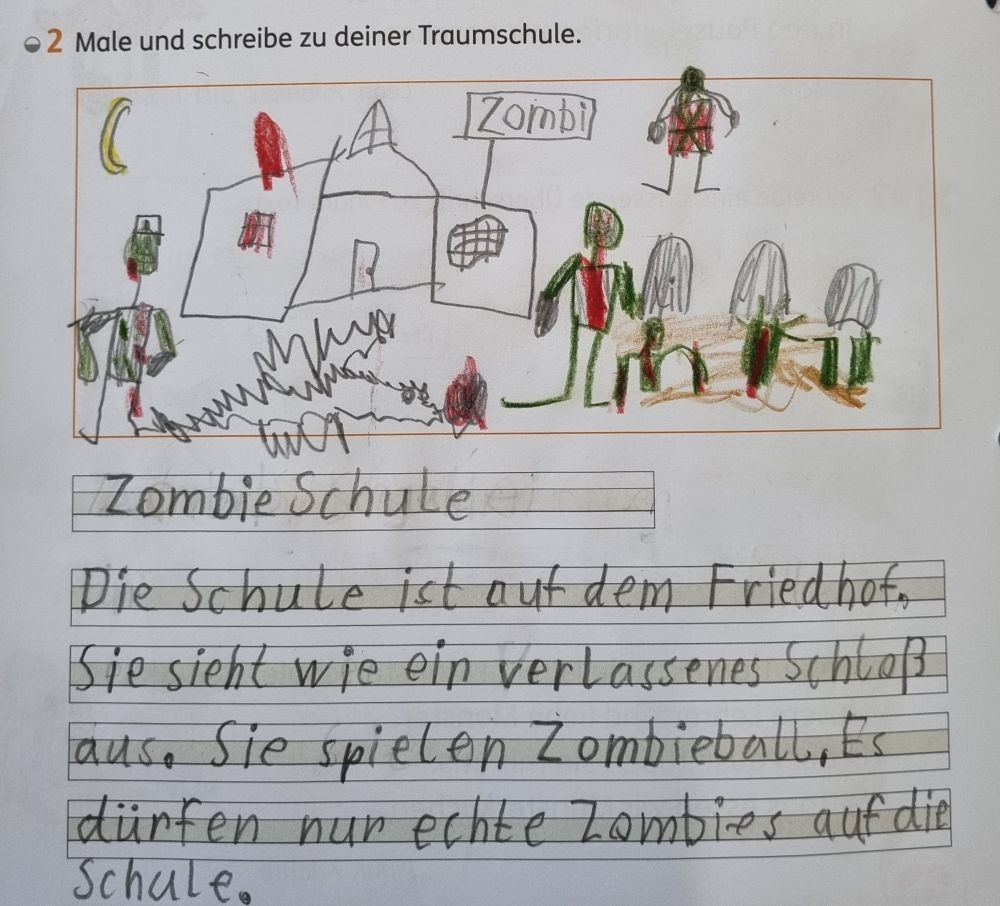 2 Male und schreibe zu deiner Traumschule.
Zombi
Zombie Schule
Die Schule ist auf dem Friedhof.
Sie sieht wie ein verlassenes Schloß
aus. Sie spielen Zombieball. Es
dürfen nur echte Zombies auf die
Schule.